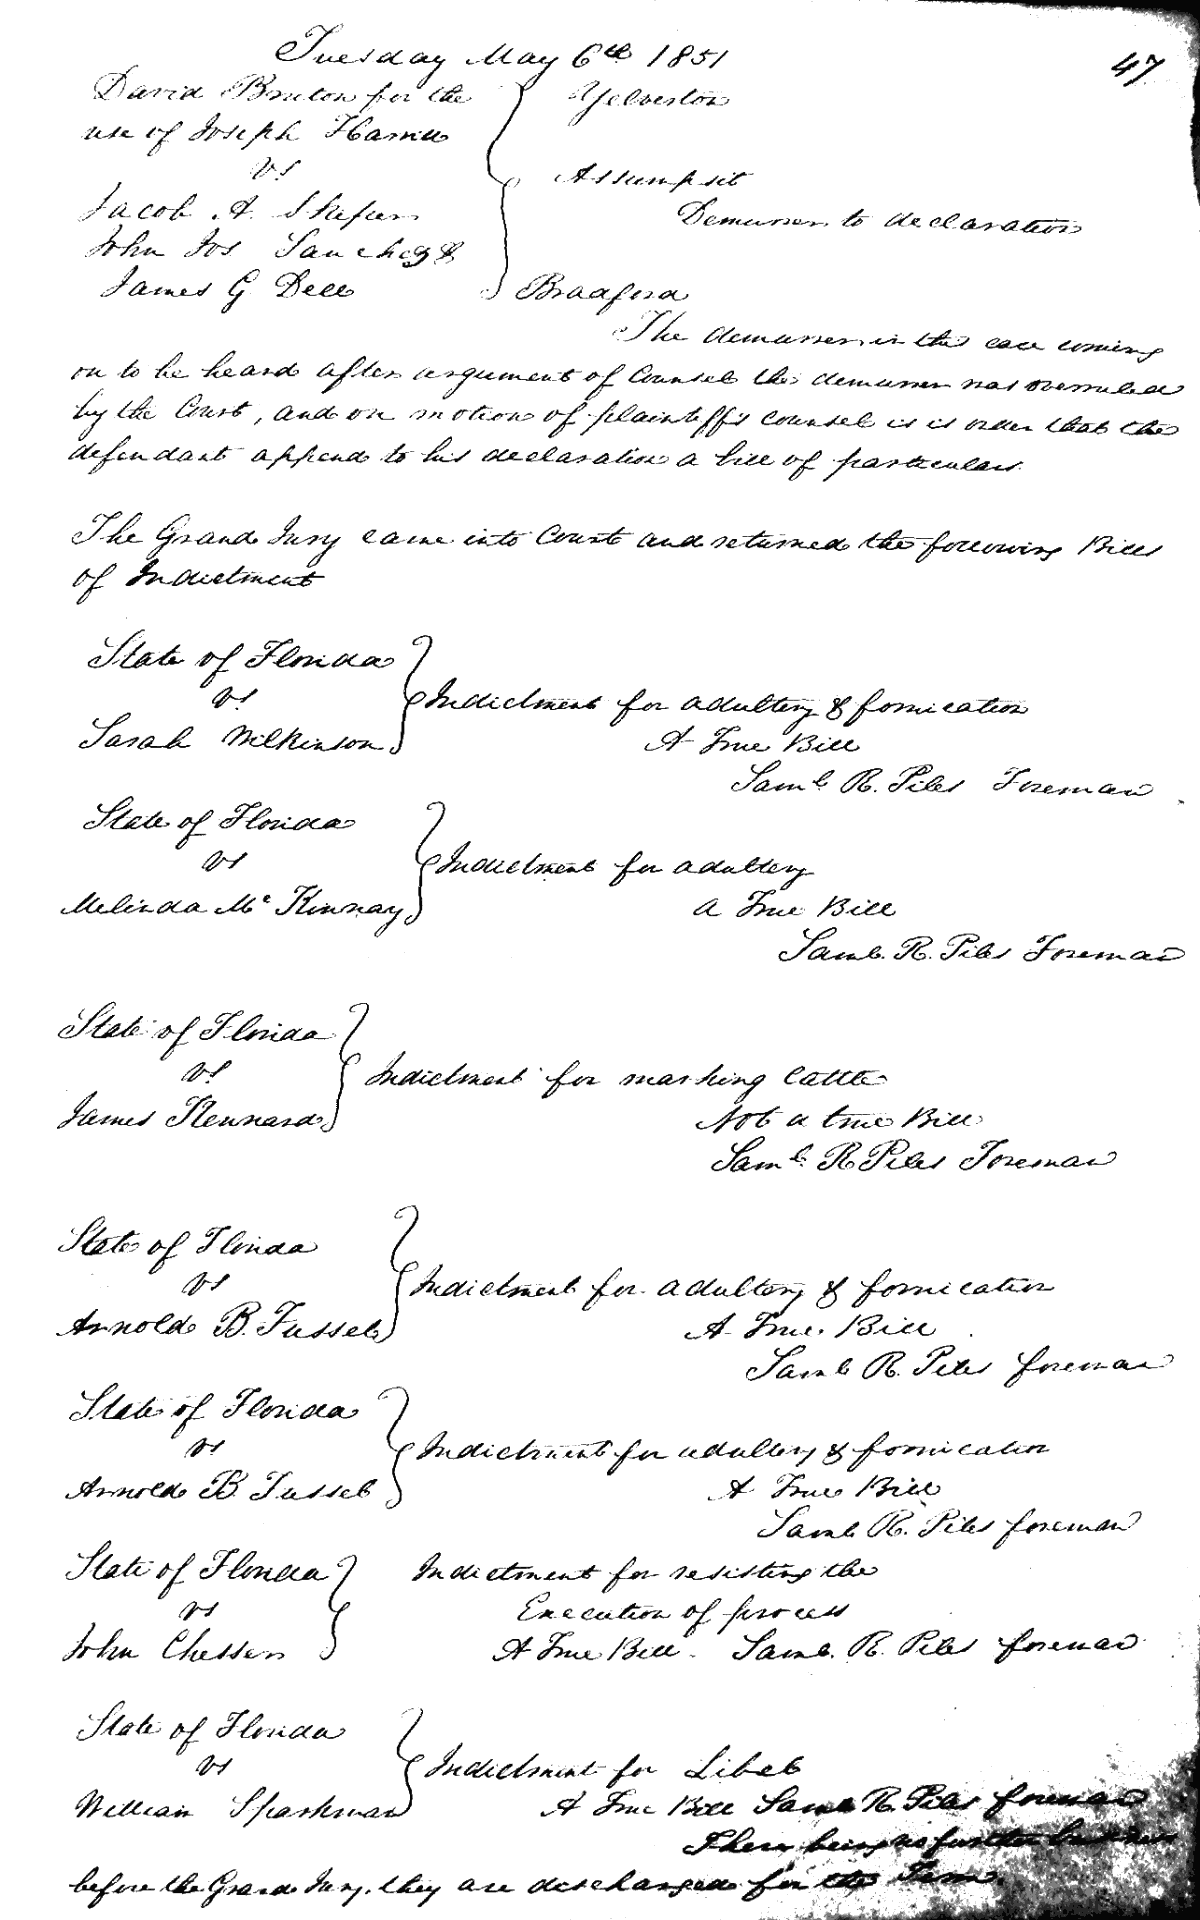 47
Tuesday May 6th 1851
David Bruton for the
use of Joseph
vs
Jacob A.
John Jos Sanchez &
James G Dell
Yelverton
Assumpsit
Demurrer to declaration
Bradford
The demurrer in this case coming
on to be heard after argument of Counsel the demurrer was overruled
by the Court, and on motion of plaintiffs counsel is is order that the
defendant append to his declaration a bill of particulars.
The Grand Jury came into Court and returned the following Bills
of Indictment
State of Florida
vs
Sarah Wilkinson
Indictment for adultery & fornication
A True Bill
Saml R. Piles Foreman
State of Florida
vs
Melinda Mc Kinnay
Indictment for adultery
a True Bill
Saml. R. Piles Foreman
State of Florida
vs
James Kennard
Indictment for marking Cattle
Not a true Bill
Saml. R Piles Foreman
State of Florida
vs
Arnold B. Tussel
Indictment for adultery & fornication
A True Bill
Saml R. Piles foreman
State of Florida
vs
Arnold B Tussel
Indictment for adultery & fornication
A True Bill
Saml R. Piles foreman
State of Florida
vs
John Chesser
Indictment for resisting the
Execution of process
A True Bill. Saml. R. Piles foreman
State of Florida
vs
William Sparkman
Indictment for Libel
A True Bill Saml R. Piles foreman
There being no further business
before the Grand Jury, they are discharged for the Term.